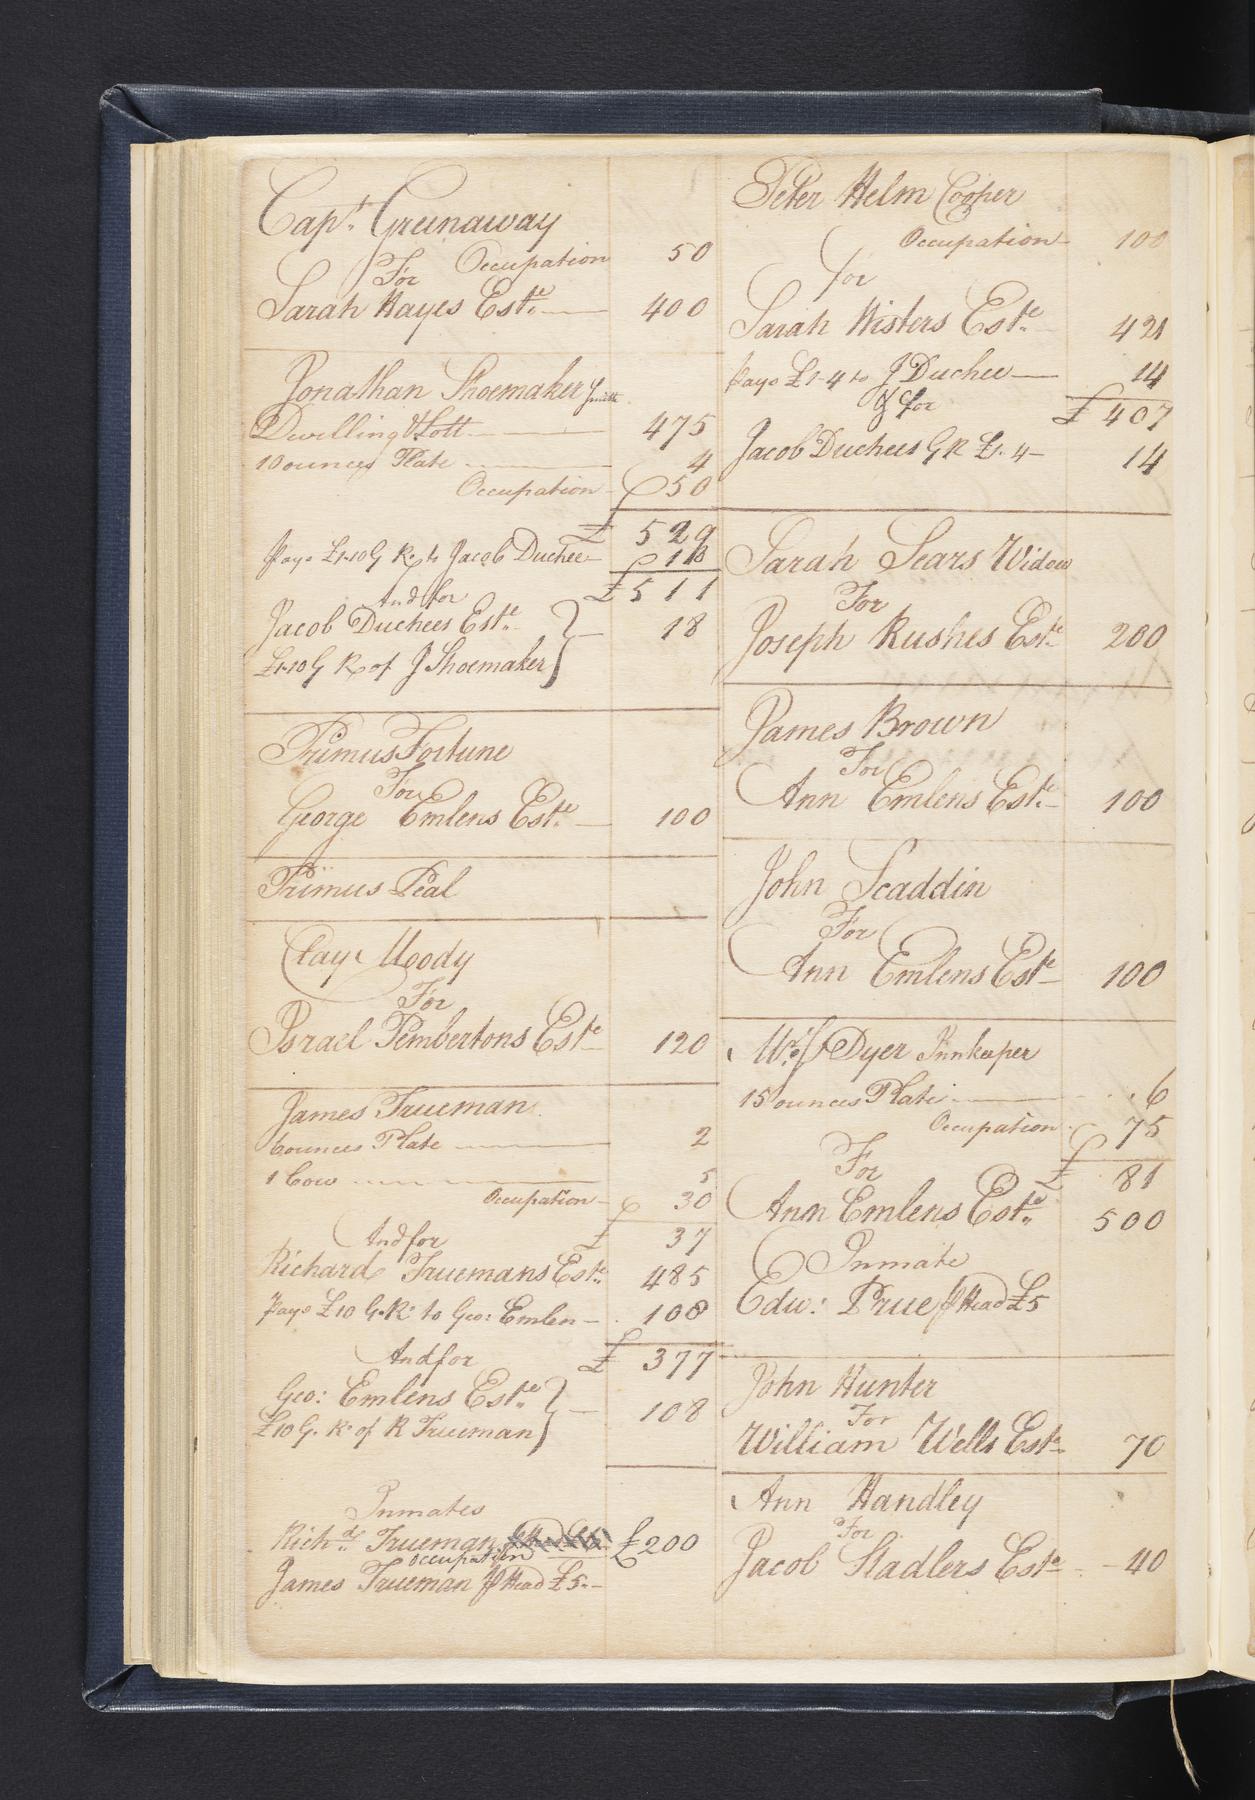 Capt. Greenaway
Occupation 50
For
Sarah Hayes Este. 400
Jonathan Shoemaker Smith
Dwelling & Lott 475
10 ounces Plate 4
Occupation 50
£ 529
Pays £1-10 G Rt. to Jacob Duchee 18
£ 511
And for
Jacob Duchees Este. } 18
£1-10 G Rt of J Shoemaker }
Primus Fortune
For
George Emlens Este. 100
Primus Peal
Clay Moody
For
Israel Pembertons Este 120
James Trueman
6 ounces Plate 2
1 Cow 5
Occupation 30
£ 37
And for
Richard Truemans Este. 485
Pays £10 G. Rt to Geo: Emlen 108
£ 377
And for
Geo: Emlens Este. } 108
£10 G. Rt of R Trueman }
Inmates
Richd. Trueman £200
occupation
James Trueman P Head £5
Peter Helm Cooper
Occupation 100
for
Sarah Wisters Este. 421
Pays £1-4 to J Duchee 14
£ 407
& for
Jacob Duchees G R £1. 4 14
Sarah Sears Widow
For
Joseph Rushes Este. 200
James Brown
For
Ann Emlens Este. 100
John Scaddin
For
Ann Emlens Este 100
Dyer Innkeeper
15 ounces Plate 6
Occupation 75
£ 81
For
Ann Emlens Este. 500
Inmate
Edw: Prue P Head £5
John Hunter
For
William Wells Este 70
Ann Handley
For
Jacob Sladlers Este 40